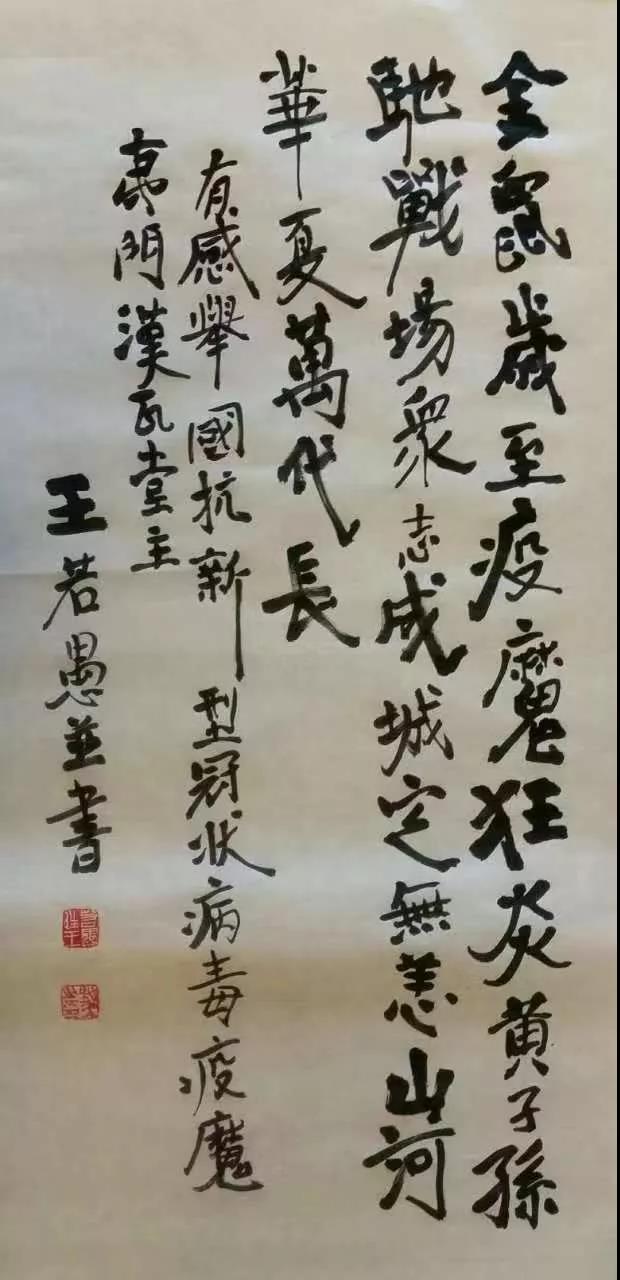 金鼠歲至疫魔狂炎黄子孫
馳戰場衆志成城定無恙山河
華夏萬代長
有感舉國抗新型冠状病毒疫魔
門漢瓦堂主
王若愚並書